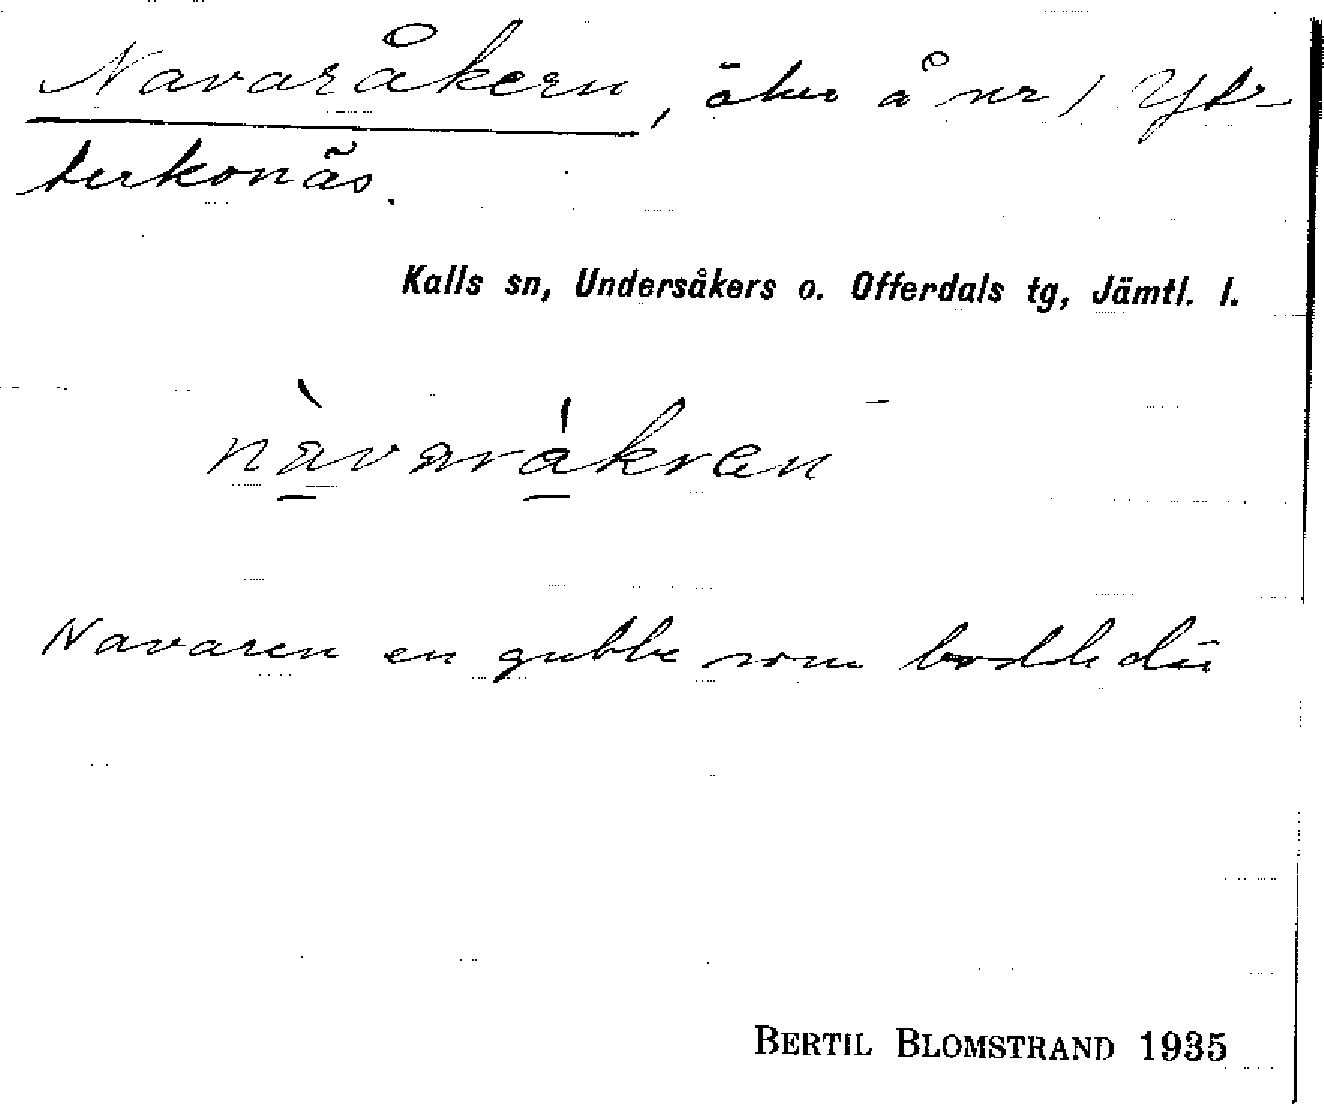 Navaråkern, åker å nr 1 Yt-
terkonäs.
Kalls sn, Undersåkers o. Offerdals tg, Jämtl. l.
nàvaråkran
Navaren en gubbe som bodde där
BERTIL BLOMSTRAND 1935